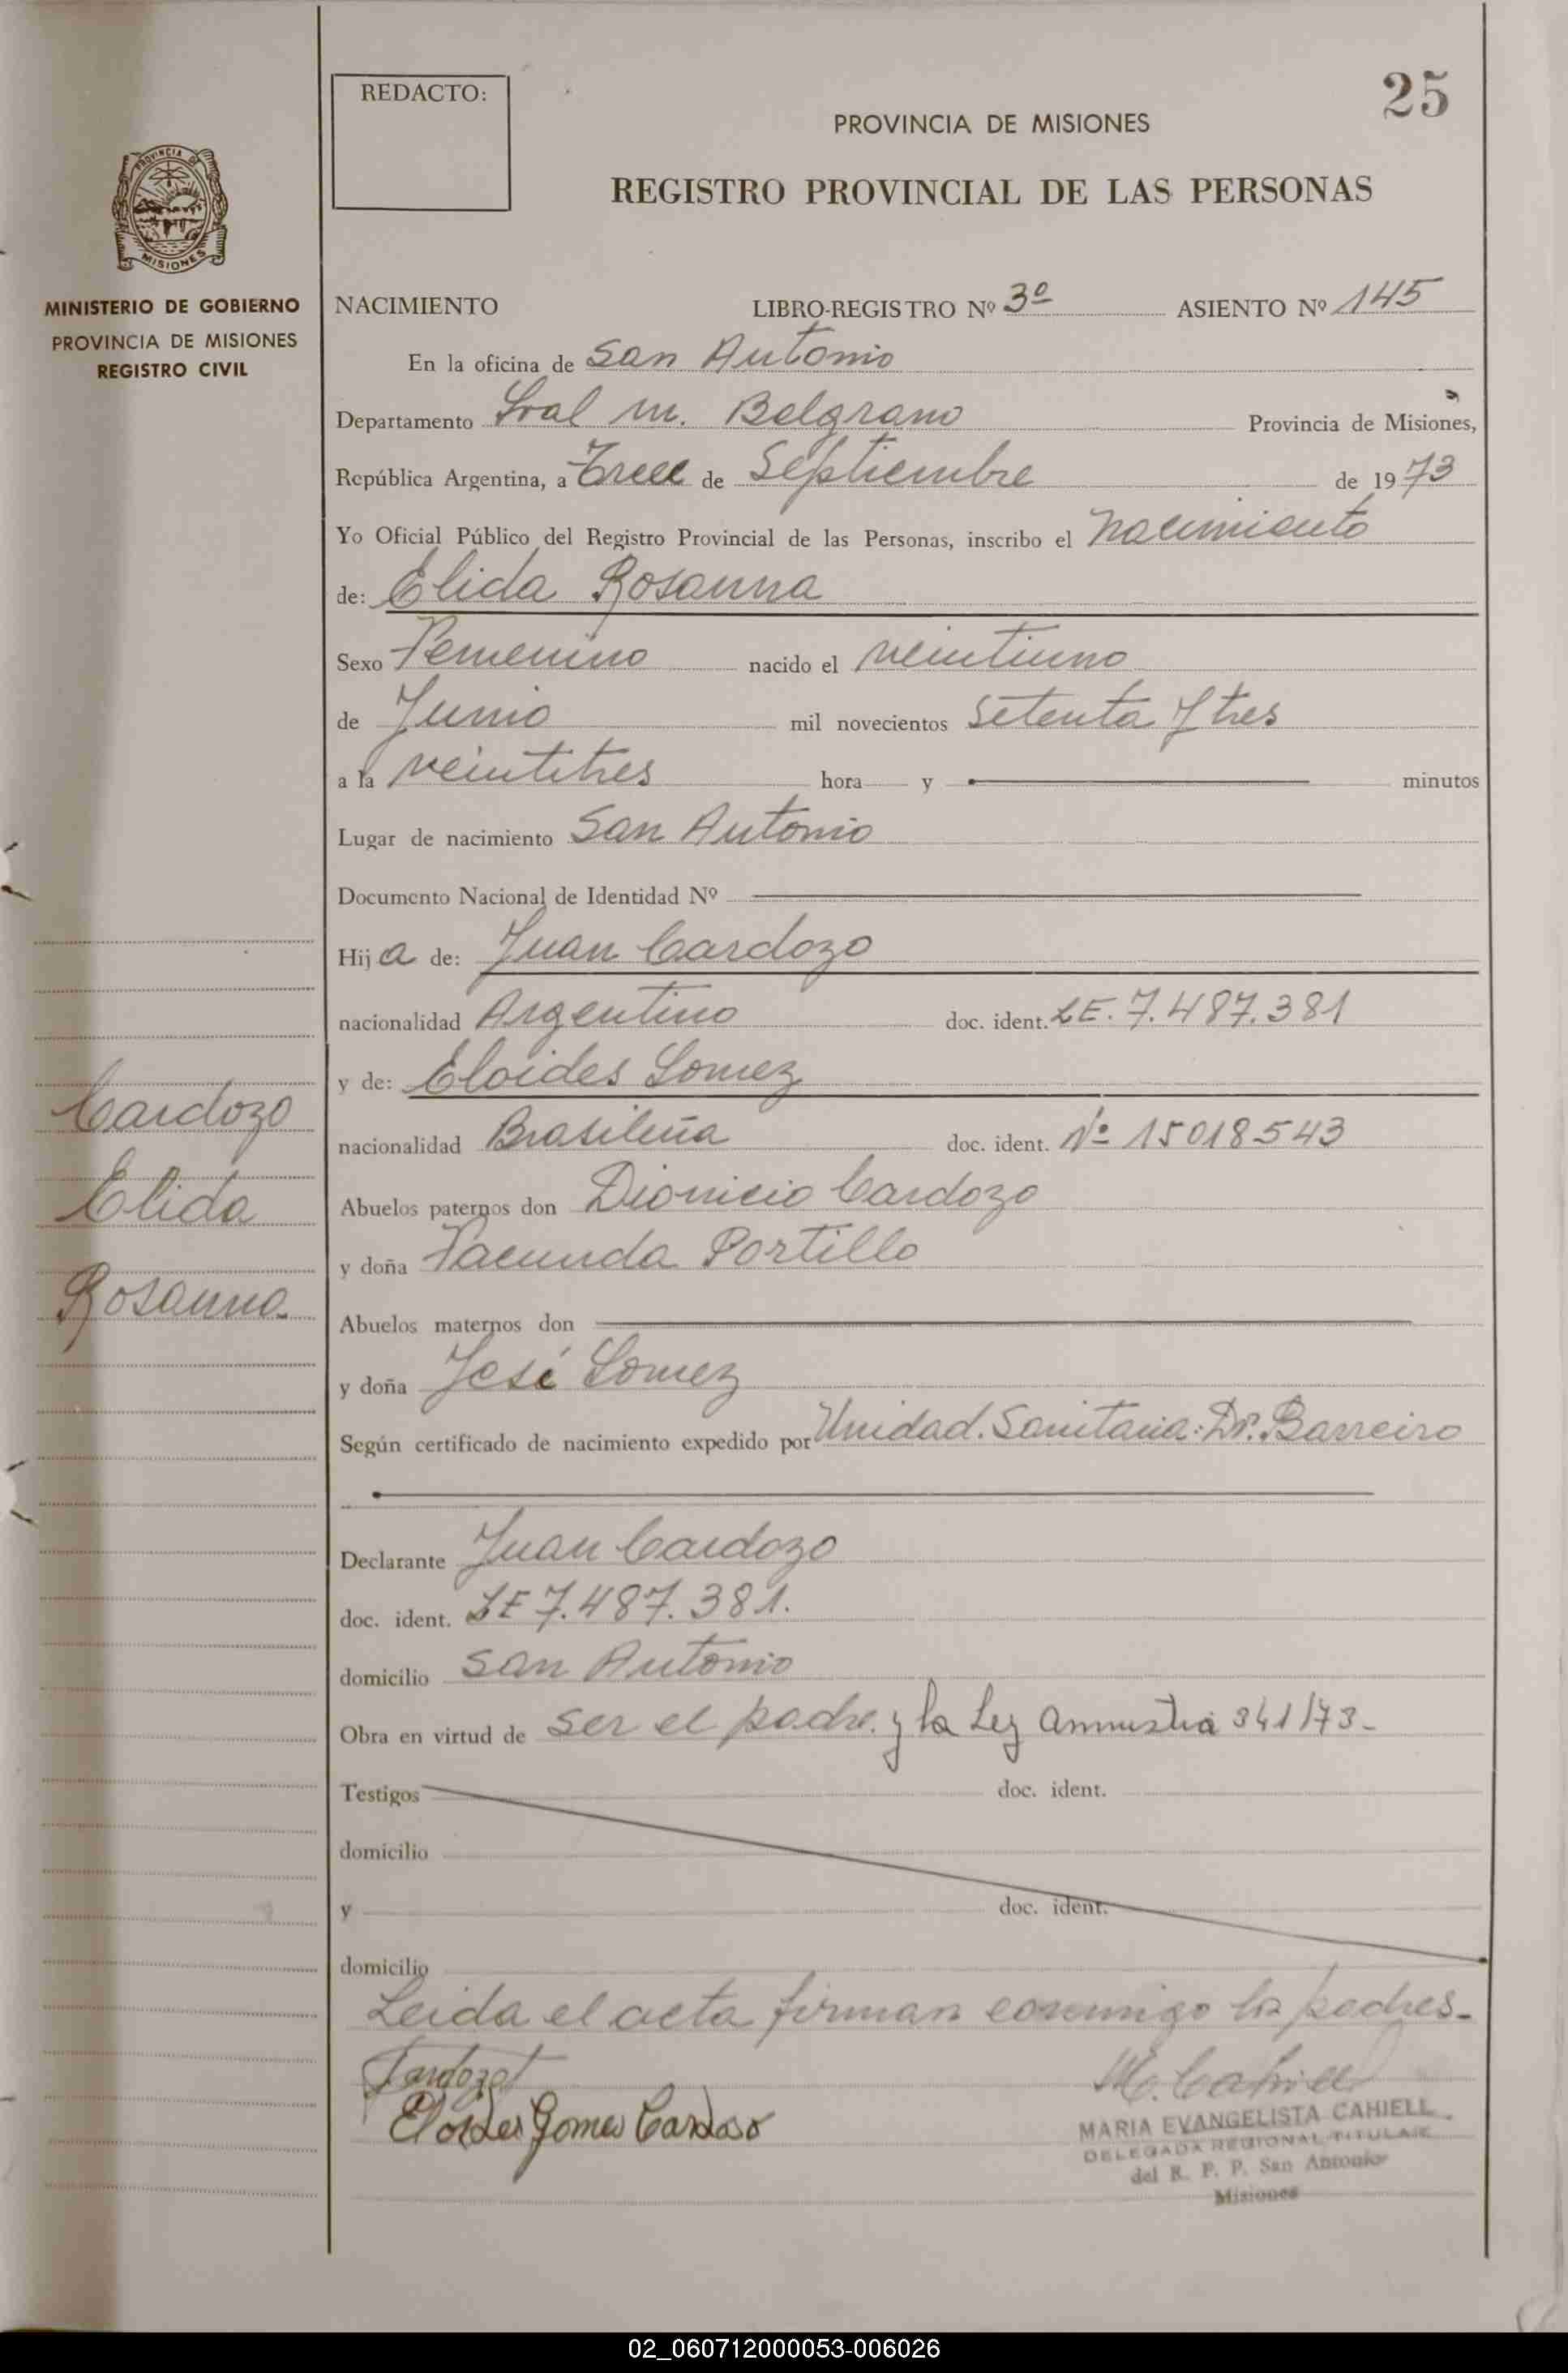 25
REDACTO:
PROVINCIA DE MISIONES
REGISTRO PROVINCIAL DE LAS PERSONAS
PROVINCIA DE
MISIONES
MINISTERIO DE GOBIERNO
PROVINCIA DE MISIONES
REGISTRO CIVIL
NACIMIENTO LIBRO-REGISTRO Nº 3º ASIENTO Nº 145
En la oficina de San Antonio
Departamento Gral M. Belgrano Provincia de Misiones,
República Argentina, a Trece de Septiembre de 1973
Yo Oficial Público del Registro Provincial de las Personas, inscribo el nacimiento
de: Elida Rosanna
Sexo Femenino nacido el veintiuno
de Junio mil novecientos setenta y tres
a la veintitres hora y minutos
Lugar de nacimiento San Antonio
Documento Nacional de Identidad Nº
Hija de: Juan Cardozo
nacionalidad Argentino doc. ident. LE. 7.487.381
y de: Eloides Gomez
nacionalidad Brasileña doc. ident. Nº 15018543
Abuelos paternos don Dionicio Cardozo
y doña Facunda Portillo
Abuelos maternos don
y doña José Gomez
Según certificado de nacimiento expedido por Unidad. Sanitaria: Dr. Barreiro
Declarante Juan Cardozo
doc. ident. LE 7.487.381.
domicilio San Antonio
Obra en virtud de ser el padre. y la Ley Amnistia 341/73-
Testigos doc. ident.
domicilio
y doc. ident.
domicilio
Leida el acta firman conmigo los padres-
Cardozo
Eloides Gomes Cardoso
M. Cahiell
MARIA EVANGELISTA CAHIELL
DELEGADA REGIONAL TITULAR
del R. P. P. San Antonio
Misiones
Cardozo
Elida
Rosanna
02_060712000053-006026